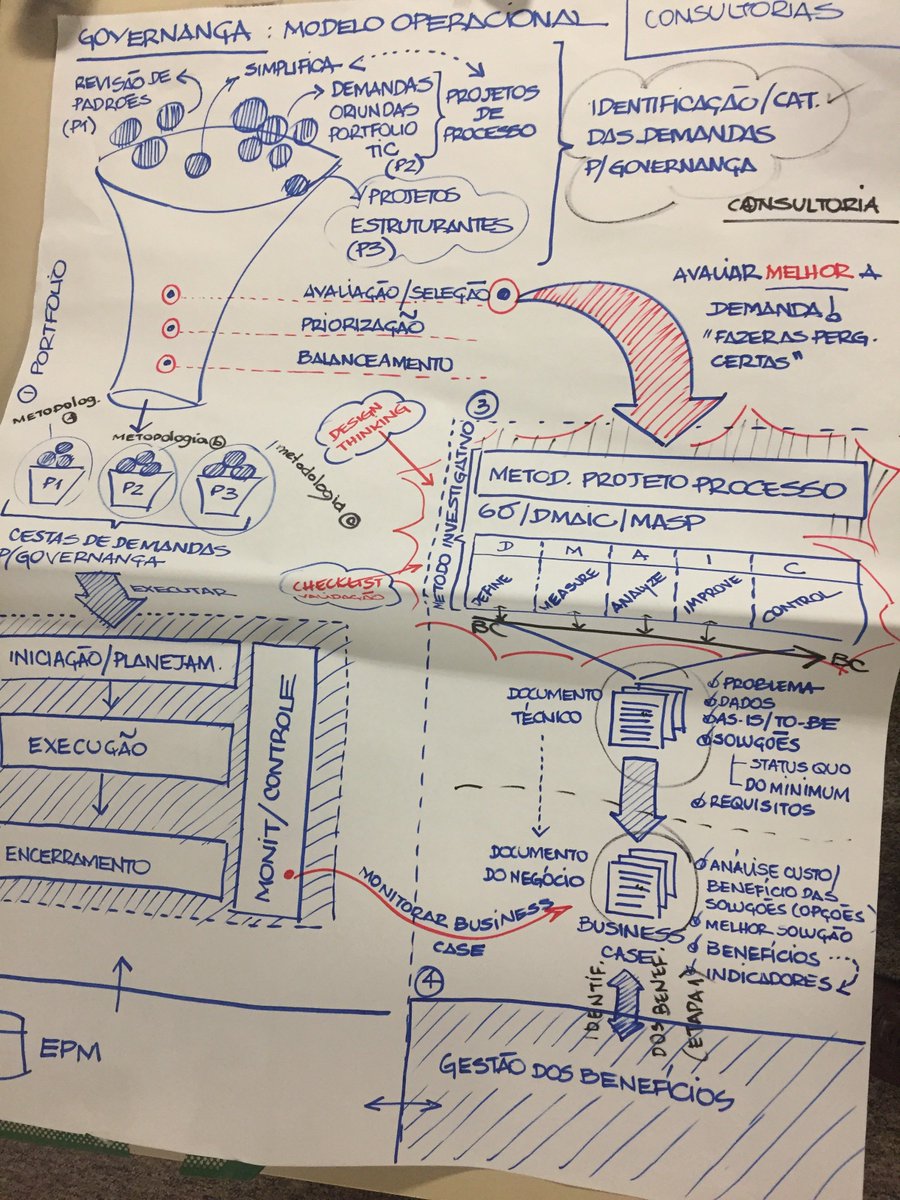 GOVERNANÇA: MODELO OPERACIONAL
CONSULTORIAS
REVISÃO DE
PADRÕES
(P1)
SIMPLIFICA
DEMANDAS
ORIUNDAS
PORTFOLIO
TIC
(P2)
PROJETOS
DE
PROCESSO
PROJETOS
ESTRUTURANTES
(P3)
IDENTIFICAÇÃO/CAT.
DAS DEMANDAS
P/GOVERNANÇA
CONSULTORIA
AVALIAR MELHOR A
DEMANDA!
"FAZER AS PERG.
CERTAS"
① PORTFOLIO
AVALIAÇÃO/SELEÇÃO
PRIORIZAÇÃO
BALANCEAMENTO
METODOLOG.
METODOLOGIA ⓑ
METODOLOGIA
P1
P2
P3
CESTAS DE DEMANDAS
P/GOVERNANÇA
EXECUTAR
DESIGN
THINKING
CHECKLIST
VALIDAÇÃO
③
METODO INVESTIGATIVO
METOD. PROJETO PROCESSO
6σ/DMAIC/MASP
D M A I C
DEFINE MEASURE ANALYZE IMPROVE CONTROL
BC
BC
INICIAÇÃO/PLANEJAM.
EXECUÇÃO
ENCERRAMENTO
MONIT/CONTROLE
DOCUMENTO
TÉCNICO
PROBLEMA
DADOS
AS-IS/TO-BE
SOLUÇÕES
STATUS QUO
DO MINIMUM
REQUISITOS
DOCUMENTO
DO NEGÓCIO
BUSINESS
CASE
ANÁLISE CUSTO/
BENEFÍCIO DAS
SOLUÇÕES (OPÇÕES)
MELHOR SOLUÇÃO
BENEFÍCIOS
INDICADORES
MONITORAR BUSINESS
CASE
④
IDENTIF.
DOS BENEF.
(ETAPA 1)
GESTÃO DOS BENEFÍCIOS
EPM